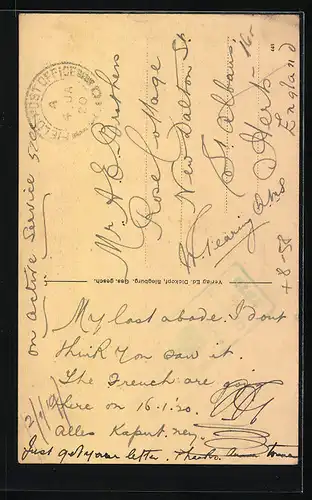 on Active Service
FIELD POST OFFICE
4 JA
20
Mr. A. E.
Rose Cottage
New Dalton St.
St Albans.
Herts
England
Verlag Ed. Dickopf, Siegburg. Ges. gesch.
My last abode. I dont
think you saw it.
The French are going
here on 16-1-'20.
Alles Kaput. ney.
Just got your letter. Thanks.